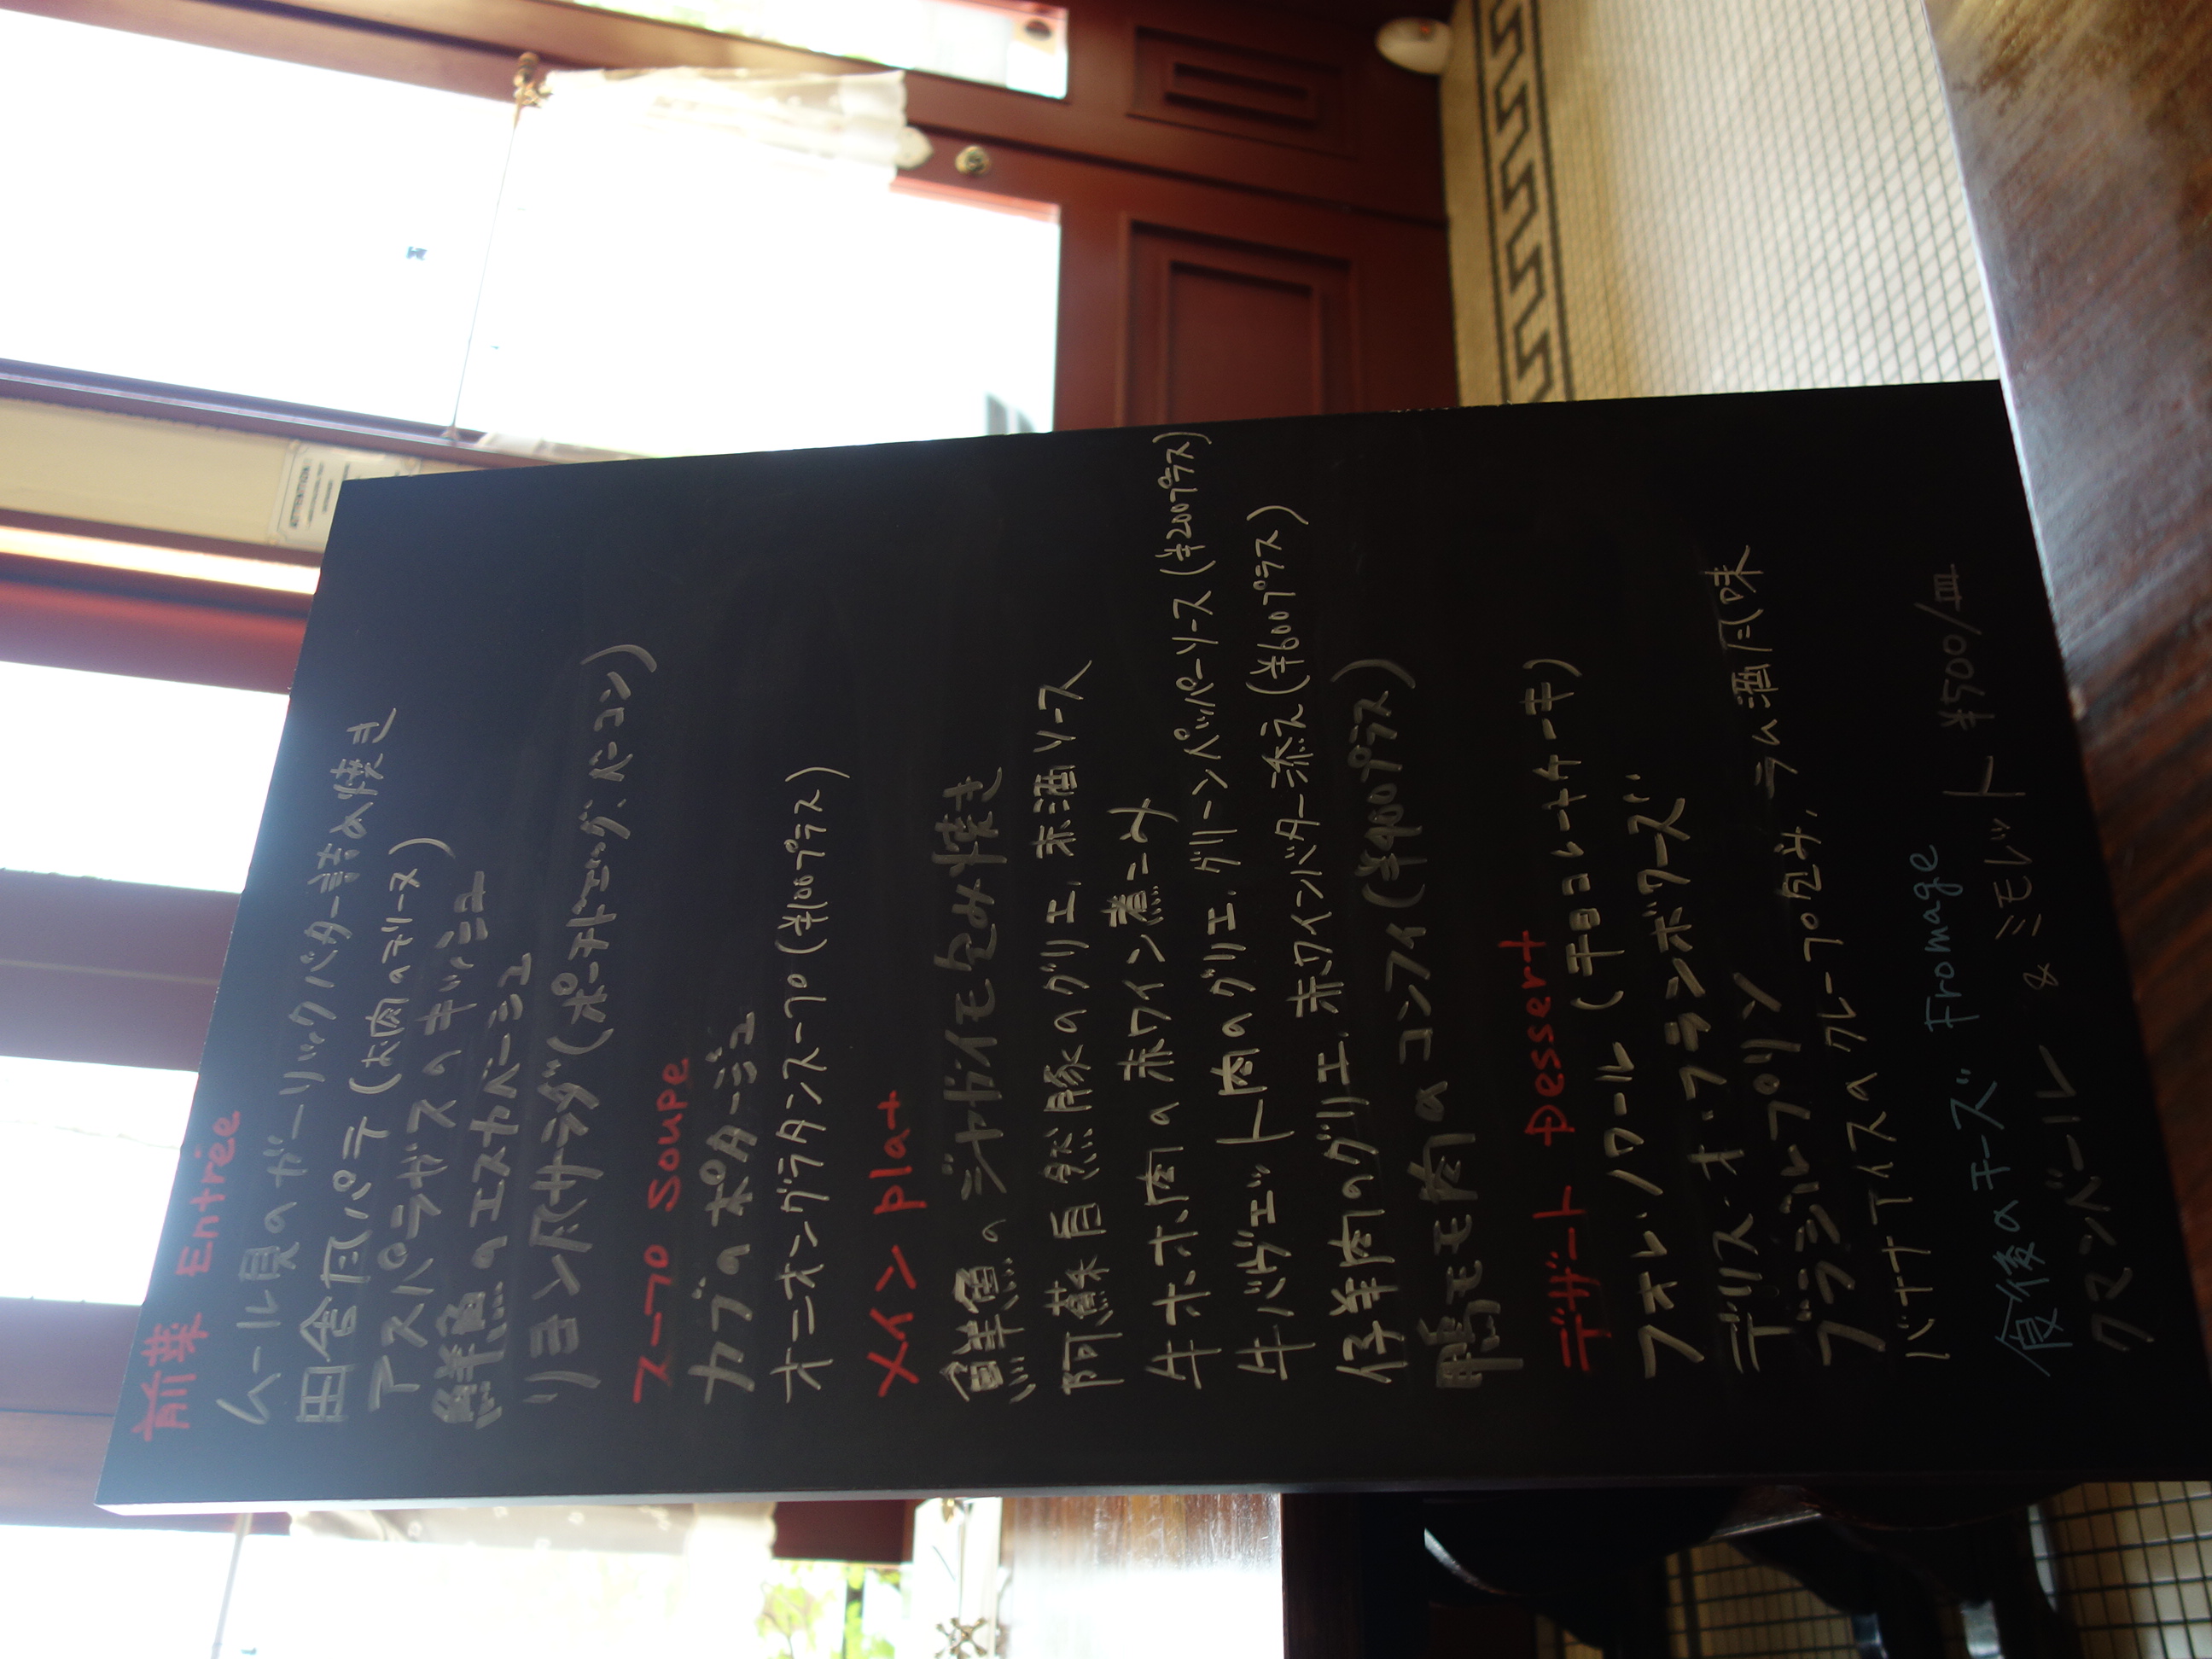 前菜 Entrée
ムール貝のガーリックバター詰め焼き
田舎風パテ(お肉のテリーヌ)
アスパラガスのキッシュ
鮮魚のエスカベーシュ
リヨン風サラダ(ポーチドエッグ、ベーコン)
スープ Soupe
カブのポタージュ
オニオングラタンスープ(¥100プラス)
メイン plat
鮮魚のジャガイモ包み焼き
阿蘇自然豚のグリエ、赤酒ソース
牛ホホ肉の赤ワイン煮こみ
牛バヴェット肉のグリエ、グリーンペッパーソース(¥200プラス)
仔羊肉のグリエ、赤ワインバター添え(¥600プラス)
鴨モモ肉のコンフィ(¥900プラス)
デザート Dessert
フォレ・ノワール (チョコレートケーキ)
デリス・オ・フランボワーズ
ブラジルプリン
バナナアイスのクレープ包み、ラム酒風味
食後のチーズ Fromage
カマンベール & ミモレット ¥500/皿
ATTENTION